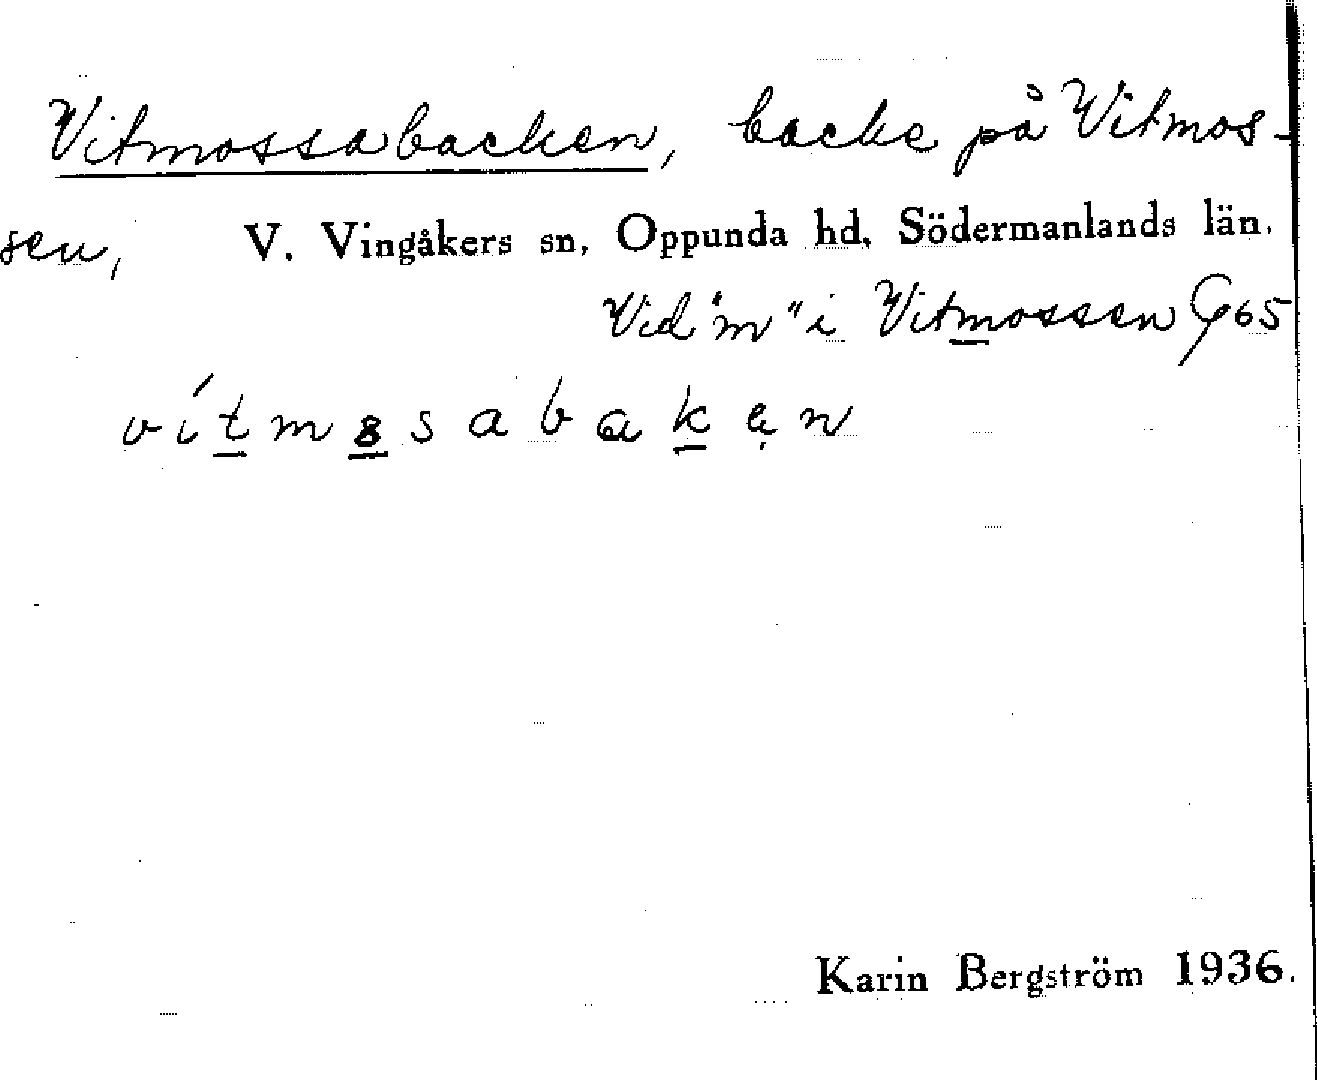 Vitmossabacken, backe på Vitmos-
sen, V. Vingåkers sn, Oppunda hd, Södermanlands län.
Vid "m" i Vitmossen G65
Karin Bergström 1936.